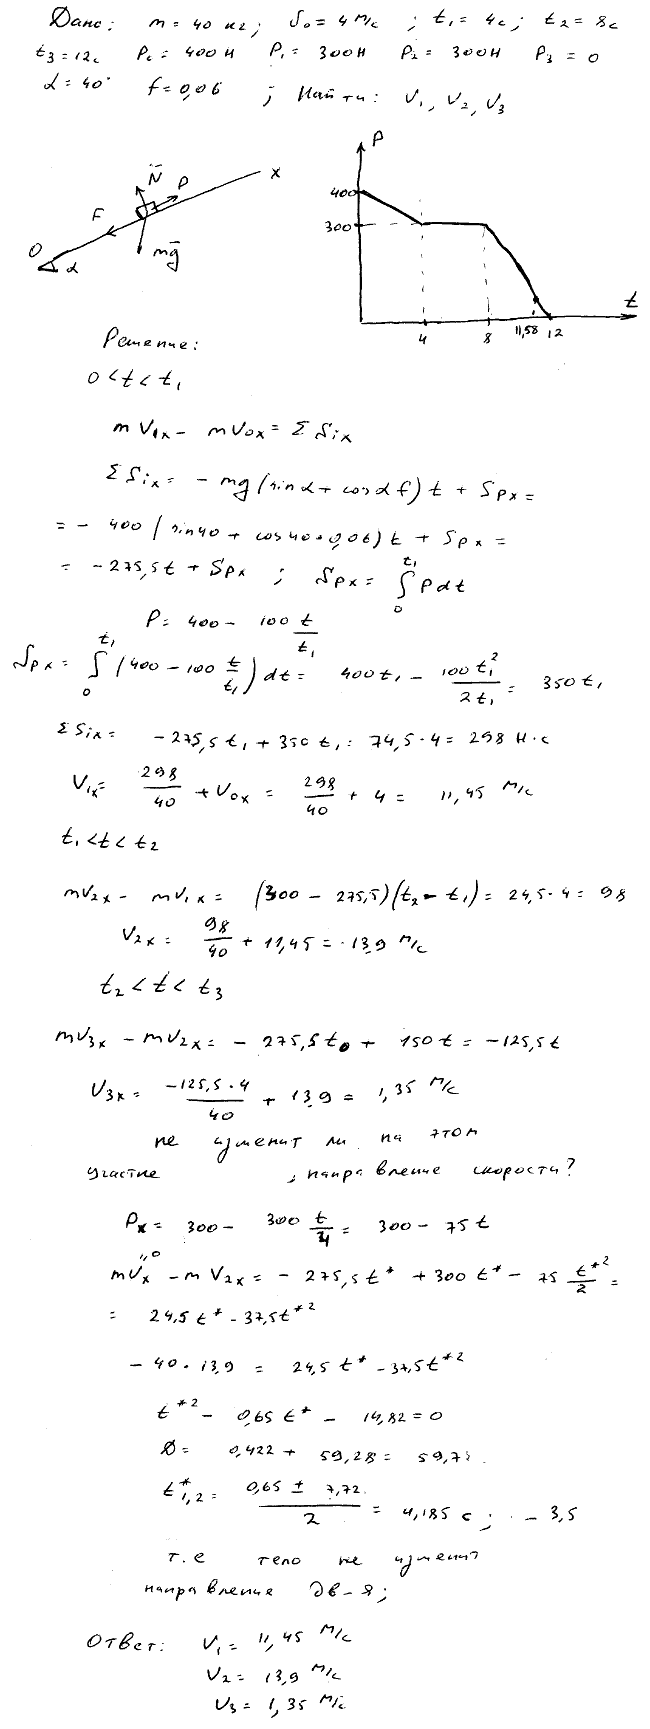 Дано: m = 40 кг; V₀ = 4 м/с; t₁ = 4с; t₂ = 8с
t₃ = 12с P₀ = 400 Н P₁ = 300 Н P₂ = 300 Н P₃ = 0
α = 40° f = 0,06 ; Найти: V₁, V₂, V₃
N̄ P x
F
O α mḡ
P
400
300
4 8 11,58 12 t
Решение:
0 < t < t₁
mV₁ₓ - mV₀ₓ = Σ Sᵢₓ
Σ Sᵢₓ = - mg (sin α + cos α f) t + Sₚₓ =
= - 400 (sin 40 + cos 40 · 0,06) t + Sₚₓ =
= -275,5t + Sₚₓ ; Sₚₓ = ∫₀^t₁ P dt
P = 400 - 100 t/t₁
Sₚₓ = ∫₀^t₁ (400 - 100 t/t₁) dt = 400t₁ - 100t₁²/2t₁ = 350t₁
Σ Sᵢₓ = -275,5t₁ + 350t₁ = 74,5·4 = 298 Н·с
V₁ₓ = 298/40 + V₀ₓ = 298/40 + 4 = 11,45 м/с
t₁ < t < t₂
mV₂ₓ - mV₁ₓ = (300 - 275,5)(t₂ - t₁) = 24,5·4 = 98
V₂ₓ = 98/40 + 11,45 = 13,9 м/с
t₂ < t < t₃
mV₃ₓ - mV₂ₓ = - 275,5t + 150t = -125,5t
V₃ₓ = -125,5·4/40 + 13,9 = 1,35 м/с
не изменит ли на этом
участке , направление скорости?
Pₓ = 300 - 300 t/4 = 300 - 75t
mVₓ″⁰ - mV₂ₓ = - 275,5t* + 300t* - 75 t*²/2 =
= 24,5t* - 37,5t*²
- 40·13,9 = 24,5t* - 37,5t*²
t*² - 0,65t* - 14,82 = 0
D = 0,422 + 59,28 = 59,7
t*₁,₂ = 0,65 ± 7,72/2 = 4,185 с; - 3,5
т.е тело не изменит
направление дв-я;
Ответ: V₁ = 11,45 м/с
V₂ = 13,9 м/с
V₃ = 1,35 м/с